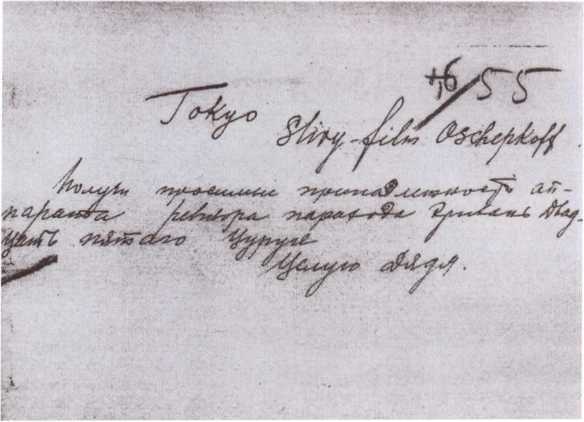 55
Tokyo
Slivy-film Oschepkoff
Получи посылке принадлежность ап-
парата ревизора парохода Эривань Двад-
цать пятого Цуруге
Целую Дядя.